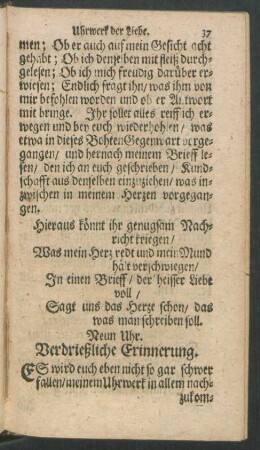 Uhrwerk der Liebe. 37
men; Ob er auch auf mein Gesicht acht
gehabt; Ob ich denselben mit fleiß durch-
gelesen; Ob ich mich freudig darüber er-
wiesen; Endlich fragt ihn/ was ihm von
mir befohlen worden und ob er Antwort
mit bringe. Ihr sollet alles reiff ich er-
wegen und bey euch wiederhohlen/ was
etwa in dieses Bohten Gegenwart vorge-
gangen/ und hernach meinem Brieff le-
sen/ den ich an euch geschrieben/ Kund-
schafft aus denselben einzuziehen/ was in-
zwischen in meinem Herzen vorgegan-
gen.
Hieraus könnt ihr genugsam Nach-
richt kriegen/
Was mein Herz redt und mein Mund
hat verschwiegen/
In einen Brieff/ der heisser Liebe
voll/
Sagt uns das Herze schon/ das
was man schreiben soll.
Neun Uhr.
Verdrießliche Erinnerung.
ES wird euch eben nicht so gar schwer
fallen/ meinem Uhrwerk in allem nach-
zukom-